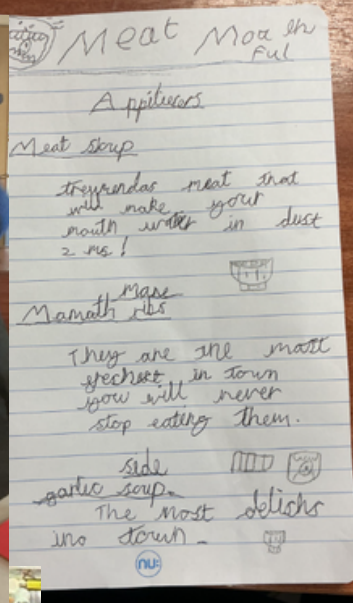 Meat Moa th
Ful
Appitucers
Meat soup
treymendas meat that
will make your
mouth water in dust
2 ms!
mane
Mamath ribs
They are the matt
in town
yow will never
stop eating them.
side
garlic soup.
The most delishs
ino town.
nu: